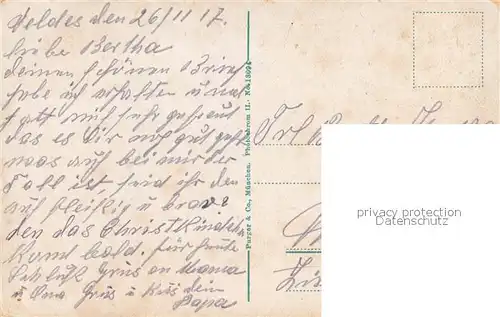 Veldes den 26/11 17.
liebe Bertha
deinen schönen Brief
habe ich erhalten u. mich
sehr gefreut
das es dir gut geht
was auch bei mir der
Fall ist, seid ihr den
auch fleißig u brav
den das Christkindl
komt bald. für heute
Schluß Grus an Mama
u Oma Grus u Kus dein
Papa
Purger & Co., München. Photochromie. No. 13094
Frl.
privacy protection
Datenschutz